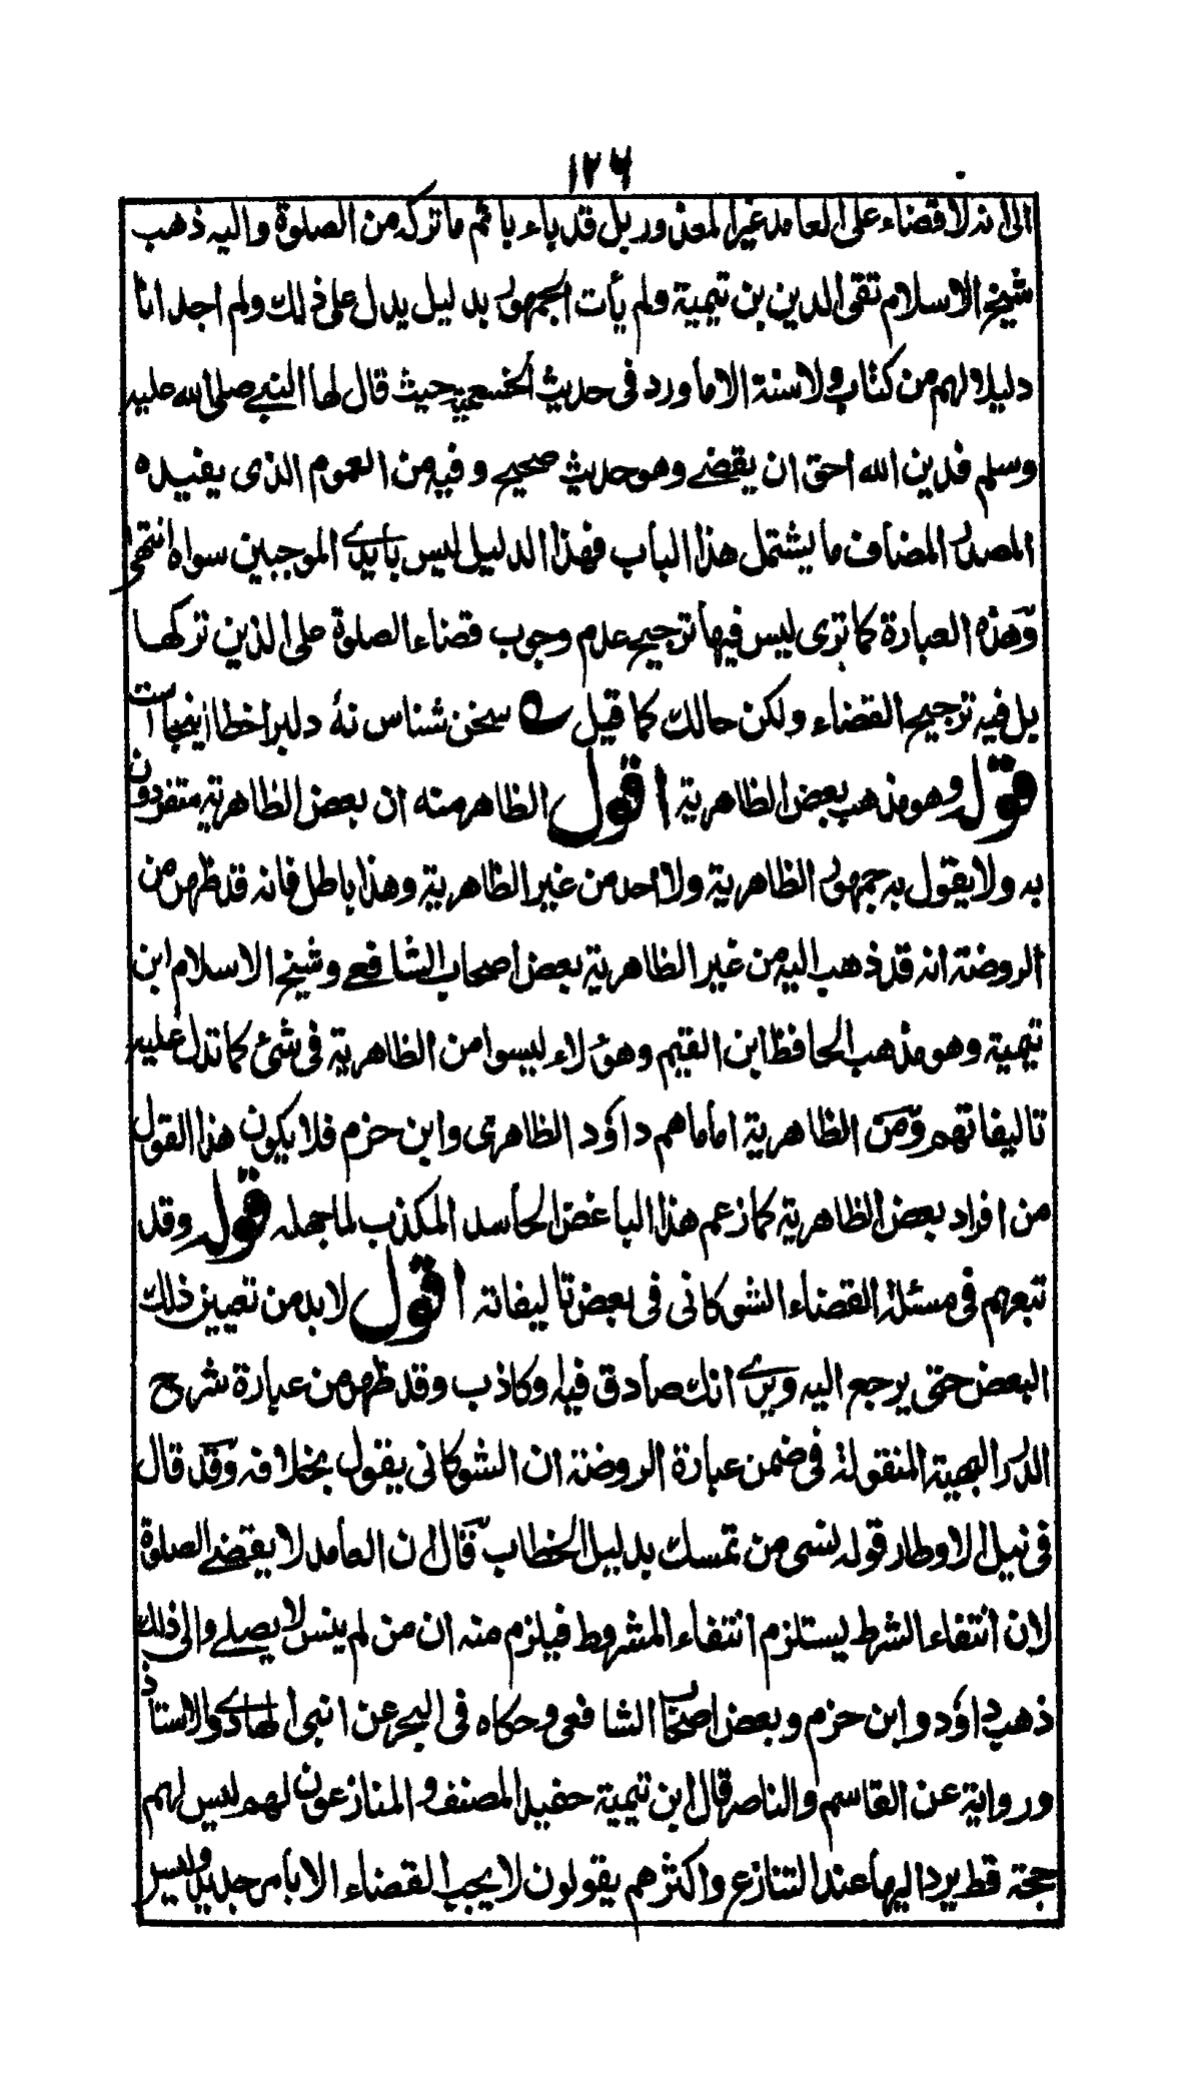 ١٢٦
الى انه لا قضاء على العامد غير المعذور بل قد باء باثم ما تركه من الصلوة واليه ذهب
شيخ الاسلام تقى الدين بن تيمية ولم يأت الجمهور بدليل يدل على ذلك ولم اجد انا
دليلا لهم من كتاب ولا سنة الا ما ورد فى حديث الخثعمية حيث قال لها النبے صلى الله عليه
وسلم فدين الله احق ان يقضے وهو حديث صحيح وفيه من العموم الذى يفيده
المصدر المضاف ما يشتمل هذا الباب فهذا الدليل ليس بايدے الموجبين سواه انتهى
وهذه العبارة كما ترى ليس فيها ترجيح عدم وجوب قضاء الصلوة على الذين تركها
بل فيه ترجيح القضاء ولكن حالك كما قيل ؎ سخن شناس نهٔ دلبرا خطا اينجاست
قوله وهو مذهب بعض الظاهرية اقول الظاهر منه ان بعض الظاهرية متفردون
به ولا يقول به جمهور الظاهرية ولا احد من غير الظاهرية وهذا باطل فانه قد ظهر من
الروضة انه قد ذهب اليه من غير الظاهرية بعض اصحاب الشافعے وشيخ الاسلام ابن
تيمية وهو مذهب الحافظ ابن القيم وهؤلاء ليسوا من الظاهرية فى شئ كما تدل عليه
تاليفاتهم ومن الظاهرية اماماهم داؤد الظاهرى وابن حزم فلا يكون هذا القول
من افراد بعض الظاهرية كما زعم هذا الباغض الحاسد المكذب لما جهله قوله وقد
تبعهم فى مسئلة القضاء الشوكانى فى بعض تاليفاته اقول لا بد من تعيين ذلك
البعض حتى يرجع اليه ويرے انك صادق فيه او كاذب وقد ظهر من عبارة شرح
الدرر البهية المنقولة فى ضمن عبارة الروضة ان الشوكانى يقول بخلافه وقد قال
فى نيل الاوطار قوله نسى من تمسك بدليل الخطاب قال ان العامد لا يقضے الصلوة
لان انتفاء الشرط يستلزم انتفاء المشروط فيلزم منه ان من لم ينس لا يصلے والى ذلك
ذهب داؤد وابن حزم وبعض اصحاب الشافعى وحكاه فى البحر عن ابنى الهادے والاستاذ
ورواية عن القاسم والناصر قال ابن تيمية حفيد المصنف والمنازعون لهم ليس لهم
حجة قط يرد اليها عند التنازع واكثرهم يقولون لا يجب القضاء الا بامر جديد وليس